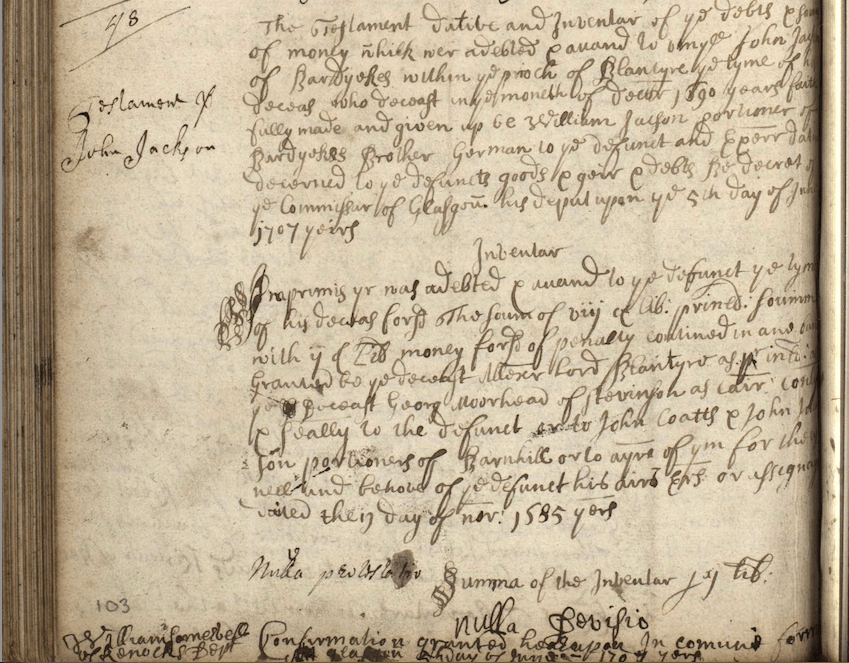 48
The Testament dative and Inventar of ye debts &
of money whilk wer adebted & awand to umqll John
of Bardyekes within ye proch of Blantyre ye tyme of
deceas who deceast in ye moneth of decer 1690 years
fully made and given up be William Jacson portioner of
Testament of
John Jackson
Bardyekes Brother German to ye defunct and Exerr
decerned to ye defuncts goods & geir & debts Be decret
ye Commissar of Glasgou his deput upon ye 5th day of
1707 yeirs
Inventar
Inprimis yr was adebted & awand to ye defunct ye tym
of his deceas forsd The soum of viij c lib: prinll: soumm
with ij c Lib money forsd of penalty contined in ane
Granted be ye deceast Allexr Lord Blantyre as
ye deceast Georg Moorhead of Stevinson as cair:
& seally to the defunct or to John Coatts & John
son portioners of Barnhill or to ayre of ym for the
and behove of ye defunct his airs Exrs or assigna
dated the day of nor: 1685 yers
Nulla
Summa of the Inventar lib:
nulla Devisio
103
Confirmation granted hereupon In comune form
day of June 1707 yers